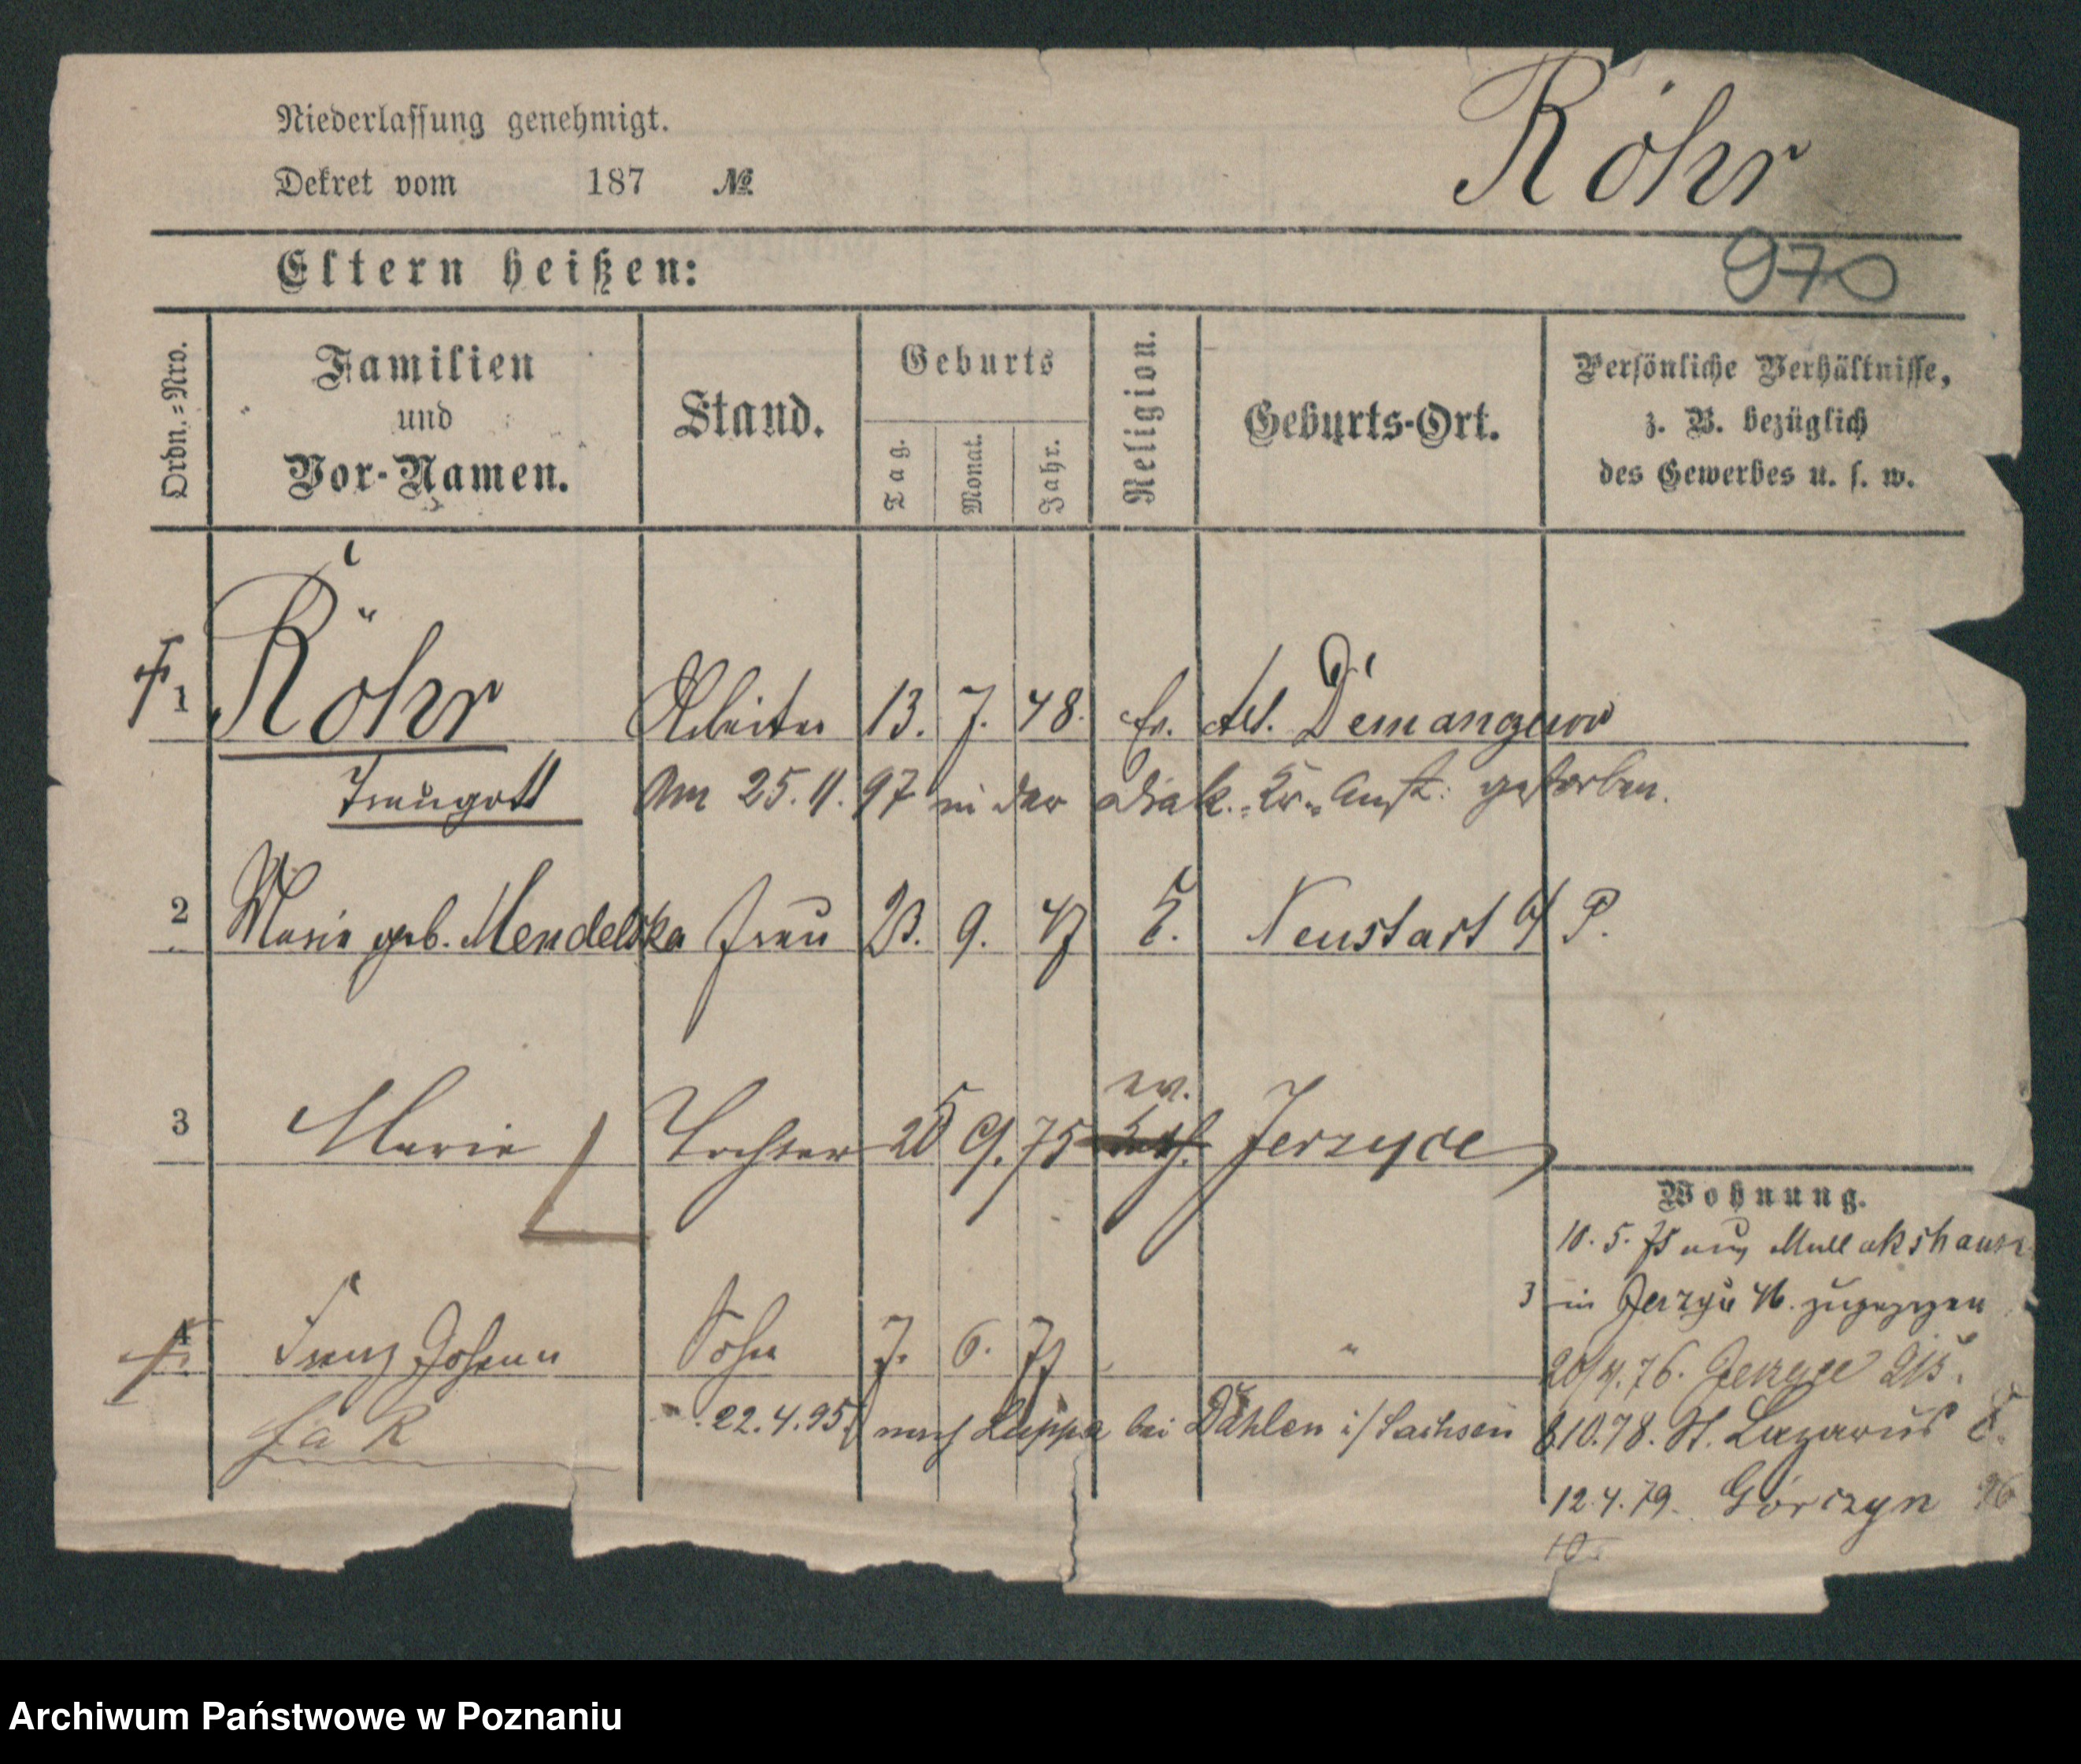 Niederlassung genehmigt.
Röhr
Dekret vom 187 №
970
Eltern heißen:
Ordn.=Nro.
Familien
und
Vor-Namen.
Stand.
Geburts
Tag.
Monat.
Jahr.
Religion.
Geburts-Ort.
Persönliche Verhältnisse,
z. B. bezüglich
des Gewerbes u. s. w.
1 Röhr Arbeiter 13. 7. 48. Ev. Demanczewo
Traugott Am 25. 11. 97 in der Diak. Kr. Anst: gestorben.
2 Marie geb. Mendelska Frau 23. 9. 47 K. Neustadt b/ P.
3 Marie Tochter 25 9. 75 ev. Kath. Jerzyce
Wohnung.
10. 5. 75 aus Mullakshausen
in Jerzyce 46. zugezogen
4 Franz Johann Sohn 7. 6. 77 "
20/4. 76. Jerzyce 215.
F a R
22. 4. 95 nach Luppa bei Dahlen i/ Sachsen
8.10.78. St. Lazarus 8.
12.4.79. Górczyn 96
Archiwum Państwowe w Poznaniu